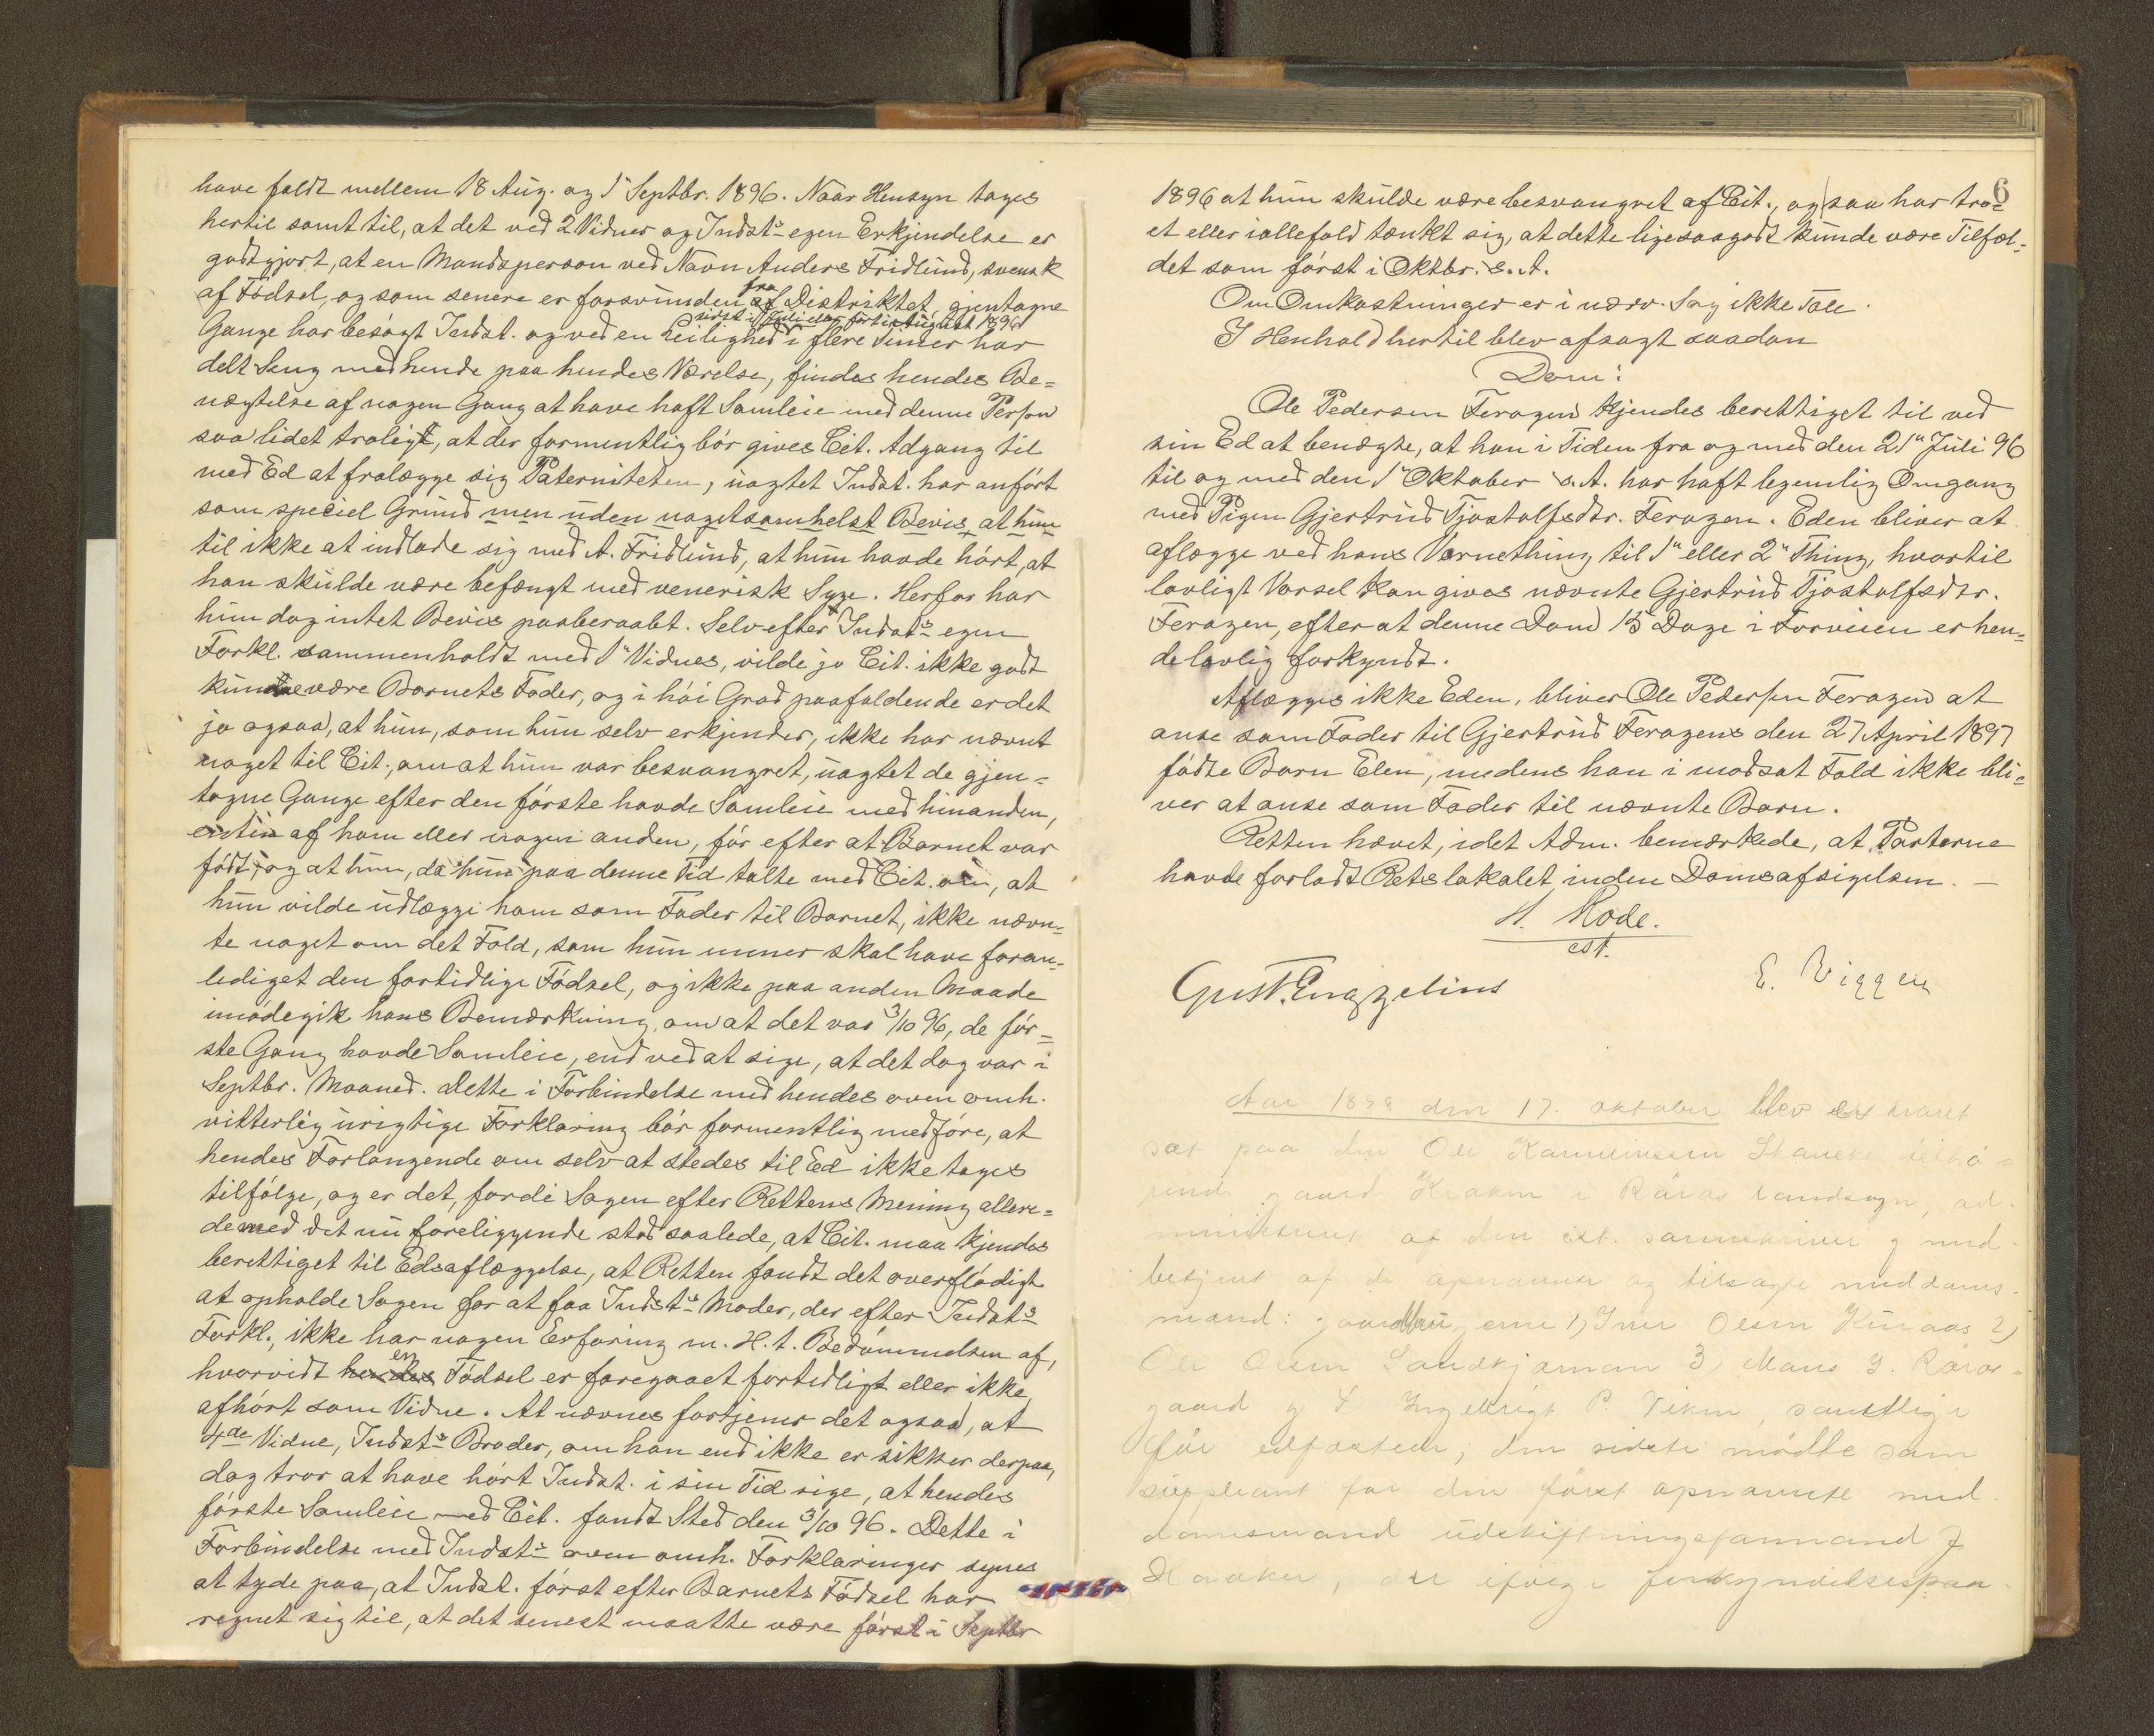 have faldt mellem 18 Aug. og 1ᵉ Septbr. 1896. Naar Hensyn tages
hertil samt til, at det ved 2 Vidner og Indstˢ egen Erkjendelse er
godtgjort, at en Mandsperson ved Navn Anders Fridlund, svensk
af Födsel, og som senere er forsvunden fra Distriktet, gjentagne
Gange har besögt Indst. og ved en Leilighed sidst i Juli eller först i August 1896 i flere Timer har
delt Seng med hende paa hendes Værelse, findes hendes Be=
nægtelse af nogen Gang at have haft Samleie med denne Person
saa lidet troligt, at der formentlig bör gives Cit. Adgang til
med Ed at fralægge sig Paterniteten, uagtet Indst. har anfört
som speciel Grund men uden nogetsomhelst Bevis, at hun
til ikke at indlade sig med A. Fridlund, at hun havde hört, at
han skulde være befængt med venerisk Syge. Herfor har
hun dog intet Bevis paaberaabt. Selv efter Indstˢ egen
Forkl. sammenholdt med 1ᵉ Vidnes, vilde jo Cit. ikke godt
kunne være Barnets Fader, og i höi Grad paafaldende er det
jo ogsaa, at hun, som hun selv erkjender, ikke har nævnt
noget til Cit., om at hun var besvangret, uagtet de gjen=
tagne Gange efter den förste havde Samleie med hinanden,
enten af ham eller nogen anden, för efter at Barnet var
födt, og at hun, da hun paa denne Tid talte med Cit. om, at
hun vilde udlægge ham som Fader til Barnet, ikke nævn=
te noget om det Fald, som hun mener skal have foran=
lediget den fortidlige Födsel, og ikke paa anden Maade
imödegik hans Bemærkning, om at det var 3/10 96, de för=
ste Gang havde Samleie, end ved at sige, at det dog var i
Septbr. Maaned. Dette i Forbindelse med hendes oven omh.
vitterlig urigtige Forklaring bör formentlig medföre, at
hendes Forlangende om selv at stedes til Ed ikke tages
tilfölge, og er det, fordi Sagen efter Rettens Mening allere=
de med det nu foreliggende stod saalede, at Cit. maa kjendes
berettiget til Edsaflæggelse, at Retten fandt det overflödigt
at opholde Sagen for at faa Indstˢ Moder, der efter Indstˢ
Forkl., ikke har nogen Erfaring m. H. t. Bedömmelsen af,
hvorvidt en Födsel er foregaaet fortidligt eller ikke,
afhört som Vidne. At nævnes fortjener det ogsaa, at
4de Vidne, Indstˢ Broder, om han end ikke er sikker derpaa,
dog tror at have hört Indst. i sin Tid sige, at hendes
förste Samleie med Cit. fandt Sted den 3/10 96. Dette i
Forbindelse med Indstˢ oven omh. Forklaringer synes
at tyde paa, at Indst. först efter Barnets Födsel har
regnet sig til, at det senest maatte være först i Septbr
6
1896 at hun skulde være besvangret af Cit., og saa har tro=
et eller iallefald tænkt sig, at dette ligesaagodt kunde være Tilfæl=
det som först i Oktbr. s. A.
Om Omkostninger er i nærv. Sag ikke Tale.
I Henhold hertil blev afsagt saadan
Dom:
Ole Pedersen Feragen kjendes berettiget til ved
sin Ed at benægte, at han i Tiden fra og med den 21ᵉ Juli 96
til og med den 1ᵉ Oktober s. A. har haft legemlig Omgang
med Pigen Gjertrud Tjostolfsdtr. Feragen. Eden bliver at
aflægge ved hans Vernething til 1ᵉ eller 2ᵉ Thing, hvortil
lovligt Varsel kan gives nævnte Gjertrud Tjostolfsdtr.
Feragen, efter at denne Dom 15 Dage i Forveien er hen=
de lovlig forkyndt.
Aflægges ikke Eden, bliver Ole Pedersen Feragen at
anse som Fader til Gjertrud Feragens den 27 April 1897
födte Barn Elen, medens han i modsat Fald ikke bli=
ver at anse som Fader til nævnte Barn.
Retten hævet, idet Adm. bemærkede, at Parterne
havde forladt Retslokalet inden Domsafsigelsen. —
H. Kode.
cst.
Gust. Engzelius
E. Viggen
Aar 1898 den 17. oktober blev ext raret
sat paa den Ole Skancke tilhö=
rende gaard Kraken i Röros landsogn, ad-
ministreret af den cst. sorenskriver og med-
betjent af de opnævnte og tilsagte meddoms-
mænd: 1) Iver Olsen Kuraas 2)
Ole Olsen 3) Mans J. Röros-
gaard og 4 Ingebrigt P. Viken, samtlige
för edfæstede; den sidste mödte som
suppleant for den först opnævnte med-
domsmand udskiftningsformand J
Haaker, der ifölge forkyndelsespaa-